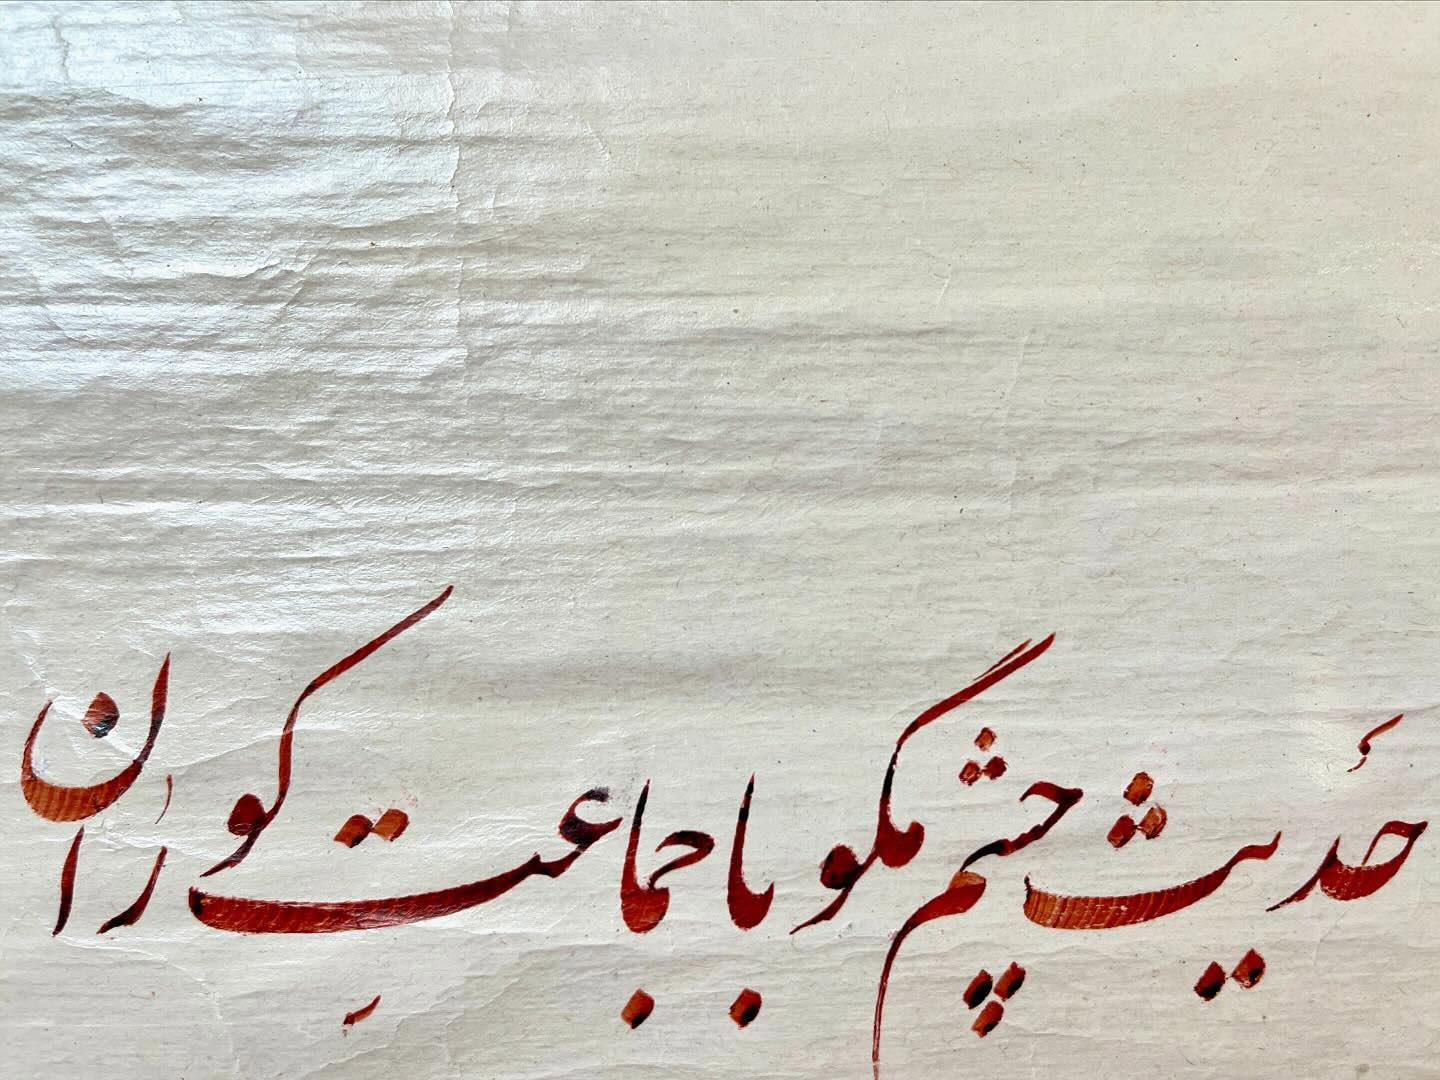 حَدیث چشم مگو با جماعتِ کوران